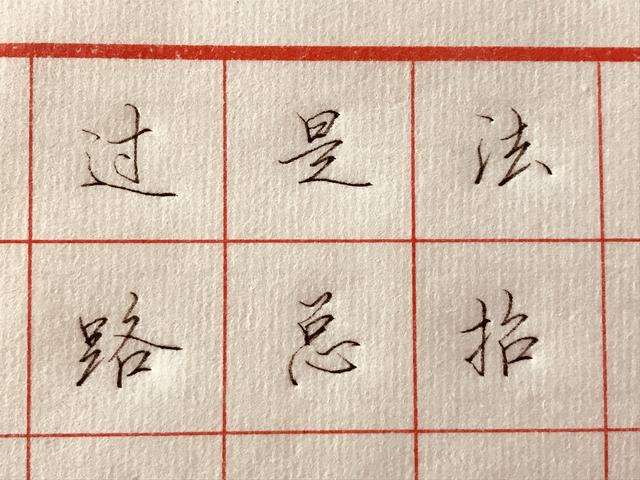 过是法
路总抬